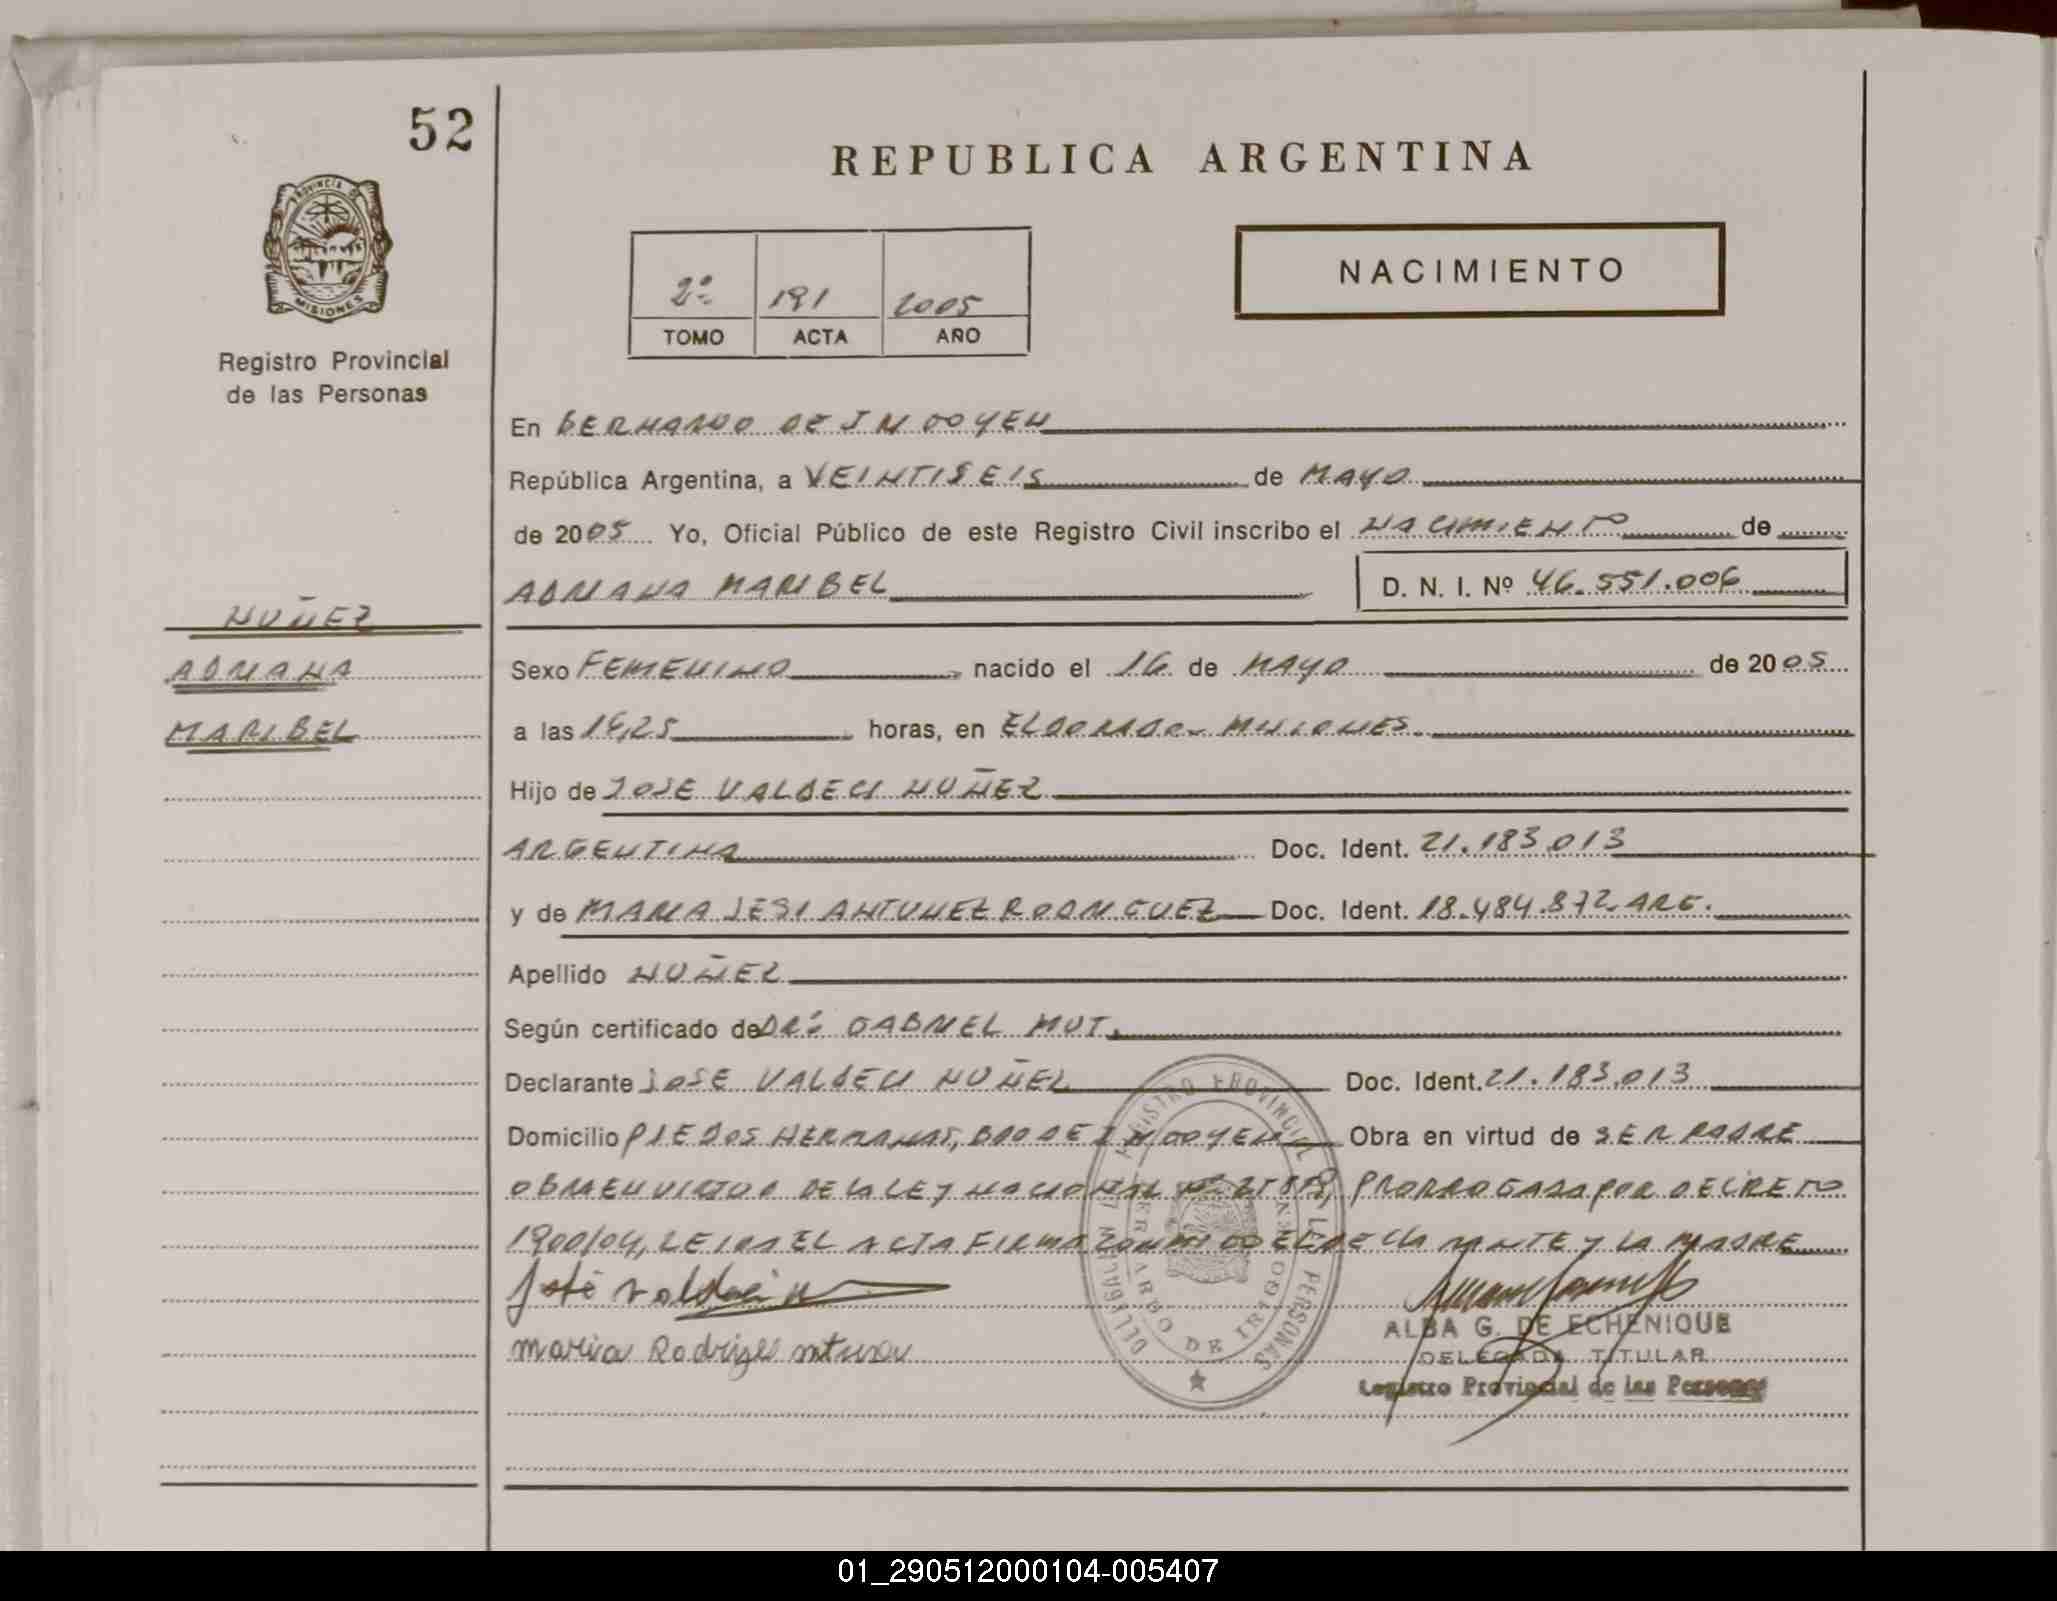 52
REPUBLICA ARGENTINA
PROVINCIA DE
MISIONES
Registro Provincial
de las Personas
2º 191 2005
TOMO ACTA AÑO
NACIMIENTO
En BERNARDO DE IRIGOYEN
República Argentina, a VEINTISEIS de MAYO
de 2005 Yo, Oficial Público de este Registro Civil inscribo el NACIMIENTO de
ADRIANA MARIBEL D. N. I. Nº 46.551.006
NUÑEZ
ADRIANA
MARIBEL
Sexo FEMENINO nacido el 16 de MAYO de 2005
a las 14,25 horas, en ELDORADO - MISIONES.
Hijo de JOSE VALDECI NUÑEZ
ARGENTINA Doc. Ident. 21.183.013
y de MARIA JESI ANTUNEZ RODRIGUEZ Doc. Ident. 18.484.872 ARG.
Apellido NUÑEZ
Según certificado de DR: GABRIEL MUT.
Declarante JOSE VALDECI NUÑEZ Doc. Ident. 21.183.013
Domicilio PIEDOS HERMANAS, BDO DE IRIGOYEN Obra en virtud de SER PADRE
OBRA EN VIRTUD DE LA LEY NACIONAL Nº PRORROGADA POR DECRETO
1900/04, LEIDA EL ACTA FIRMAN CONMIGO EL DECLARANTE Y LA MADRE
José Valdeci
maria Rodrigez
DELEGACION REGISTRO PROVINCIAL DE LAS PERSONAS
BERNARDO DE IRIGOYEN
ALBA G. DE ECHENIQUE
DELEGADA TITULAR
Registro Provincial de las Personas
01_290512000104-005407